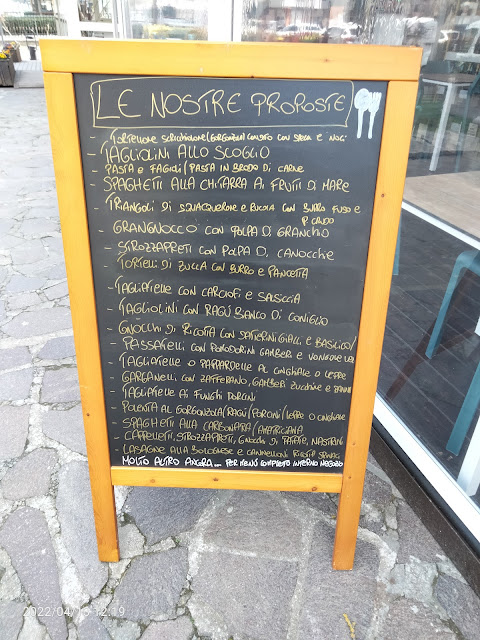 LE NOSTRE PROPOSTE
- TORTELLONE SCHIACCIONE (GORGONZOLA) CONDITO CON SPECK E NOCI
- TAGLIOLINI ALLO SCOGLIO
- PASTA E FAGIOLI/PASTA IN BRODO DI CARNE
- SPAGHETTI ALLA CHITARRA AI FRUTTI DI MARE
- TRIANGOLI DI SQUACQUERONE E RUCOLA CON BURRO FUSO E
P. CRUDO
- GRANGNOCCO CON POLPA DI GRANCHIO
- STROZZAPRETI CON POLPA DI CANOCCHIE
- TORTELLI DI ZUCCA CON BURRO E PANCETTA
- TAGLIATELLE CON CARCIOFI E SALSICCIA
- TAGLIOLINI CON RAGÙ BIANCO DI CONIGLIO
- GNOCCHI DI RICOTTA CON DATTERINI GIALLI E BASILICO/
- PASSATELLI CON POMODORINI GAMBERI E VONGOLE
- TAGLIATELLE O PAPPARDELLE AL CINGHIALE O LEPRE
- GARGANELLI CON ZAFFERANO, GAMBERI ZUCCHINE E
- TAGLIATELLE AI FUNGHI PORCINI
- POLENTA AL GORGONZOLA/RAGÙ/PORCINI/LEPRE O CINGHIALE
- SPAGHETTI ALLA CARBONARA/AMATRICIANA
- CAPPELLETTI, STROZZAPRETI, GNOCCHI DI PATATE, NASTRINI
- LASAGNE ALLA BOLOGNESE E CANNELLONI RICOTTA SPINACI
MOLTO ALTRO ANCORA... PER MENÙ COMPLETO INTERNO NEGOZIO
2022/04/15 12:19